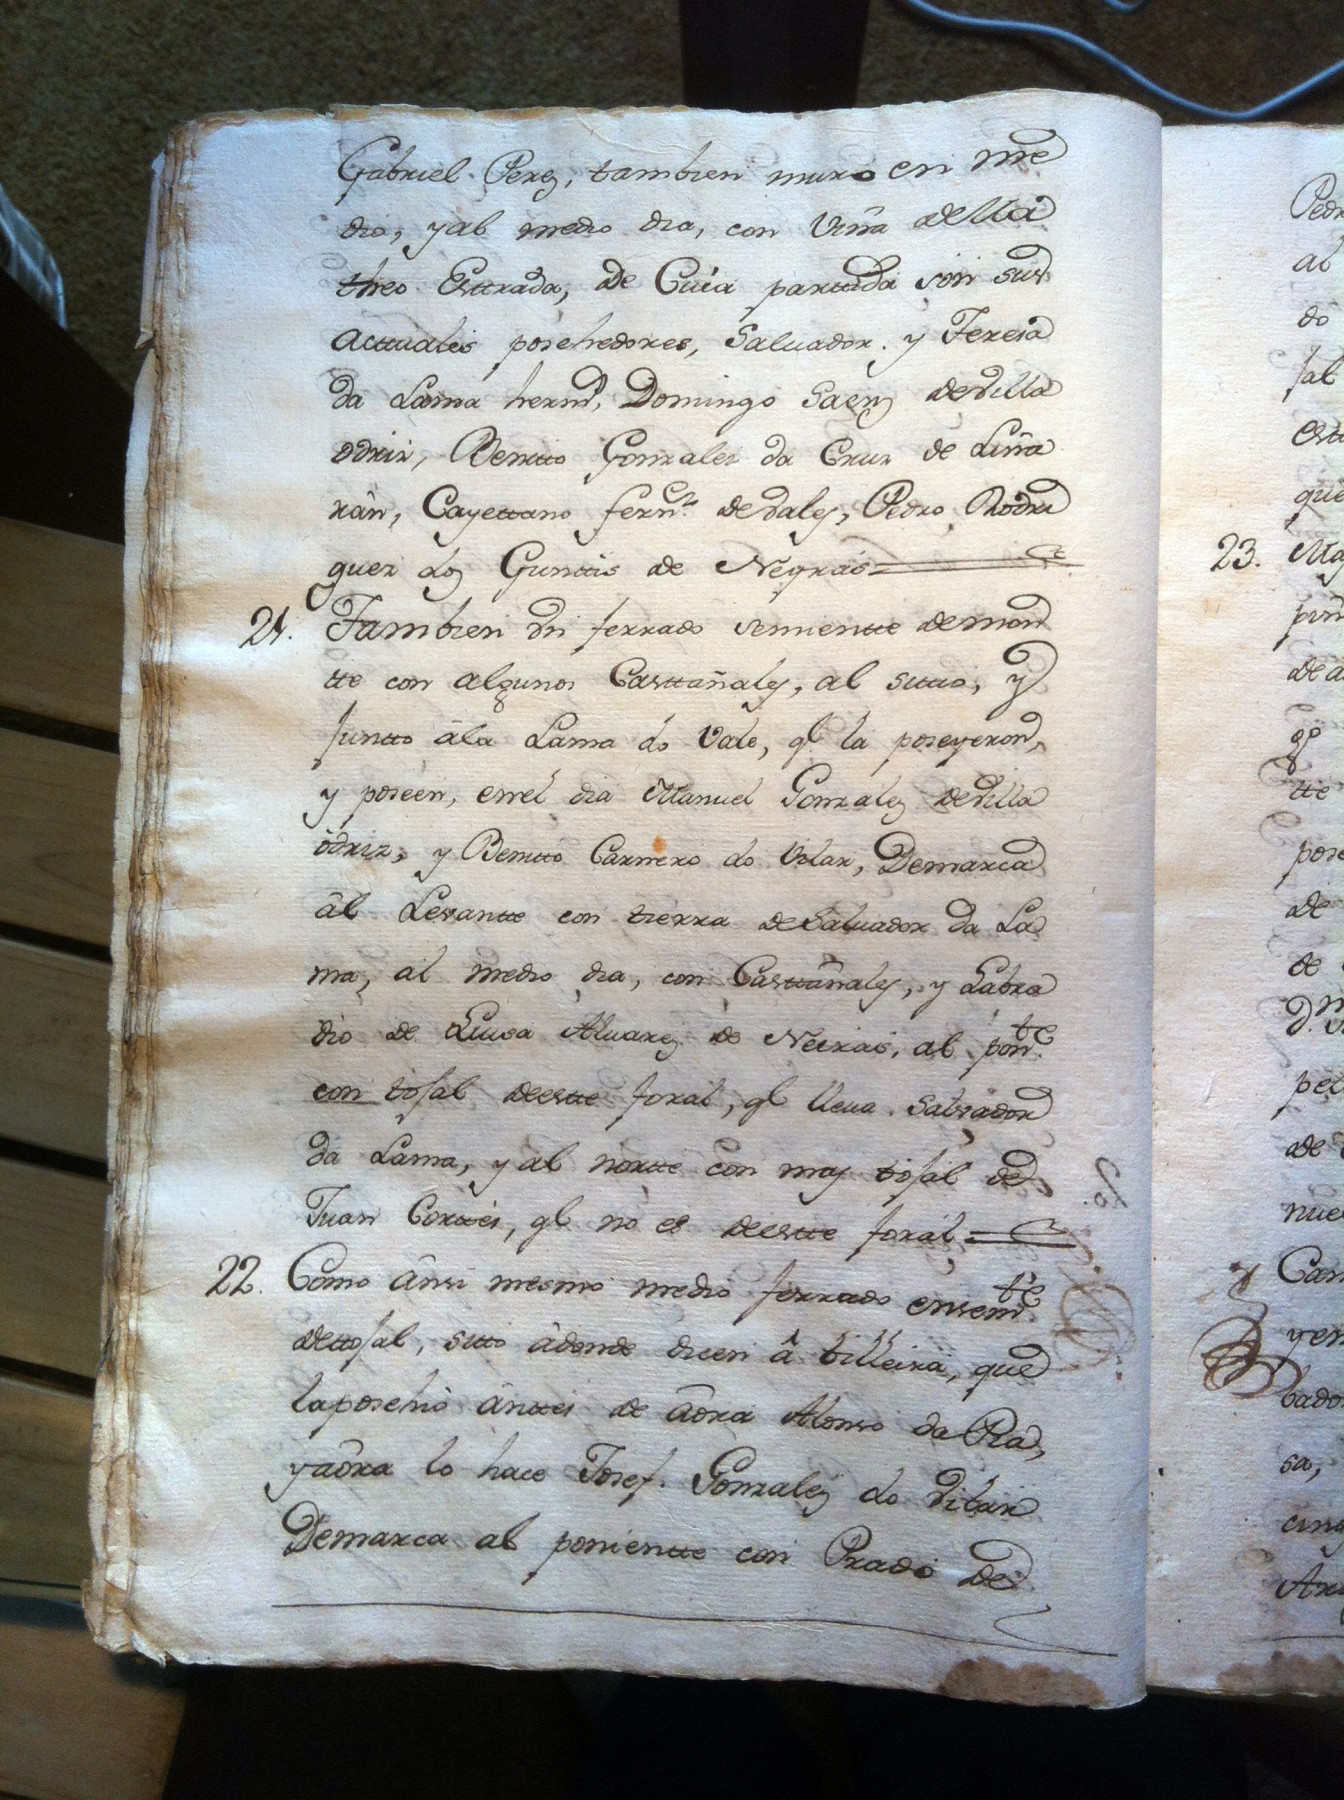 Gabriel Perez, tambien muro en me
dio, y al medio dia, con Viña de Ma
theo Esttrada, de Cuia parttida son sus
acttuales posehedores, Salvador y Teresa
da Lama herms, Domingo Saez de Villa
odriz, Benitto Gonzales da Cruz de Liña
rân, Cayettano fernz de Vales, Pedro Rodri
guez dos Gunttis de Negrás
21. Tambien un ferrado semientte de mon
tte con algunos Casttañales, al sittio, y
juntto âla Lama do Vale, ql la poseyeron,
y poseen, enel dia Manuel Gonzalez de Villa
ôdriz, y Benitto Carnero do Vilar, Demarca
âl Levantte con tierra de Salvador da La
ma, al medio dia, con Casttañales, y Labra
dio de Luisa Alvarez de Neiras, al ponte
con tojal deestte foral, ql lleva Salvador
da Lama, y al nortte con mas tojal de
Juan Corttés, ql no es deestte foral
22. Como ânsi mesmo medio ferrado ensemte
dettojal, sitto âdonde dicen â tilleira, que
laposehió ânttes de âora Alonso da Ria,
y aôra lo hace Josef Gonzalez do Vilar
Demarca al ponientte con Prado de
Ped
al
do
jal
estt
que
23. Ma
pin
de a
qo
tte
pose
de
de
D.
pel
de
nue
Can
yen
bado
sa,
cin